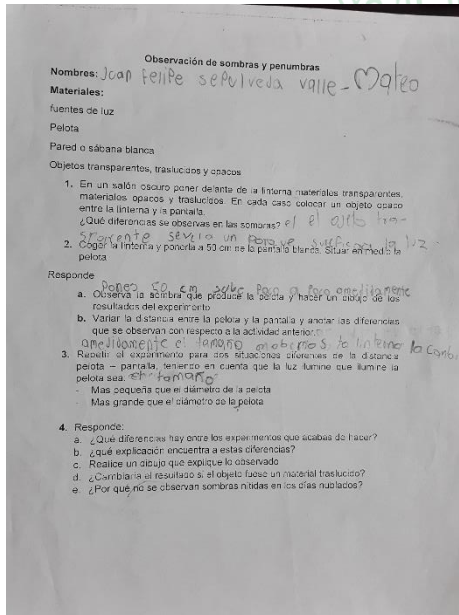 Observación de sombras y penumbras
Nombres: Joan felipe sepulveda valle - Mateo
Materiales:
fuentes de luz
Pelota
Pared o sábana blanca
Objetos transparentes, traslucidos y opacos
1. En un salón oscuro poner delante de la linterna materiales transparentes,
materiales opacos y traslucidos. En cada caso colocar un objeto opaco
entre la linterna y la pantalla.
¿Qué diferencias se observan en las sombras? el
un la luz
2. Coger la linterna y ponerla a 50 cm de la pantalla blanca. Situar en medio la
pelota
Responde
50 cm
a. Observa la sombra que produce la pelota y hacer un dibujo de los
resultados del experimento
b. Variar la distancia entre la pelota y la pantalla y anotar las diferencias
que se observan con respecto a la actividad anterior.
el tamaño
3. Repetir el experimento para dos situaciones diferentes de la distancia
pelota – pantalla, teniendo en cuenta que la luz ilumine que ilumine la
pelota sea: el tamaño
- Mas pequeña que el diámetro de la pelota
- Mas grande que el diámetro de la pelota
4. Responde:
a. ¿Qué diferencias hay entre los experimentos que acabas de hacer?
b. ¿qué explicación encuentra a estas diferencias?
c. Realice un dibujo que explique lo observado
d. ¿Cambiaria el resultado si el objeto fuese un material traslucido?
e. ¿Por qué no se observan sombras nítidas en los días nublados?